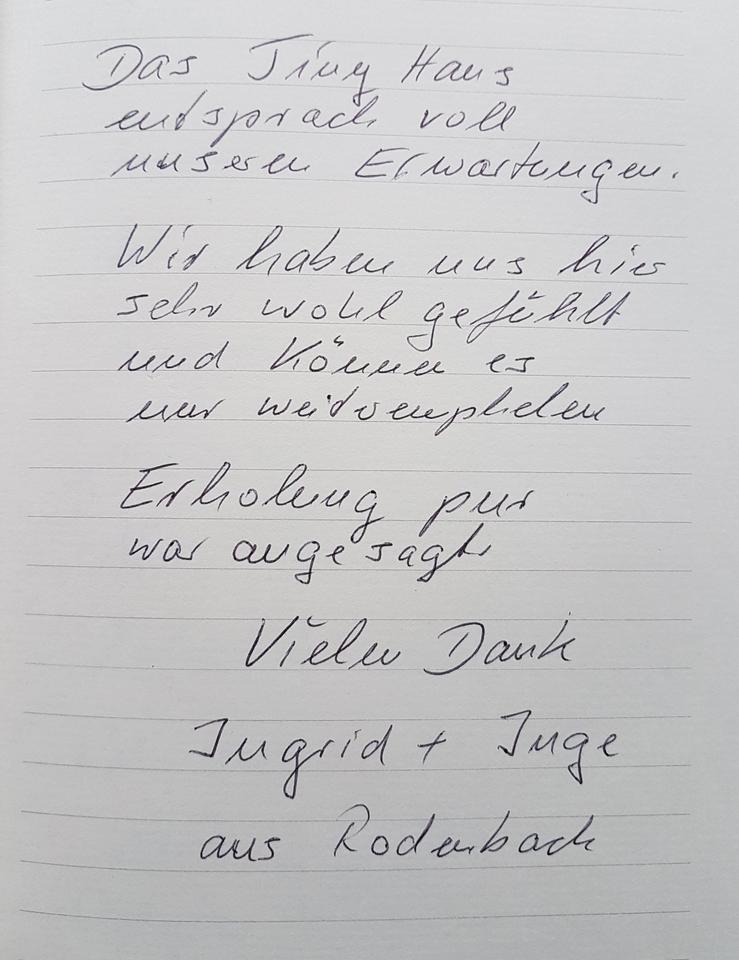 Das Tiny Haus
entsprach voll
unseren Erwartungen.
Wir haben uns hier
sehr wohl gefühlt
und können es
nur weiterempfhelen
Erholung pur
war angesagt
Vielen Dank
Ingrid + Inge
aus Rodenbach